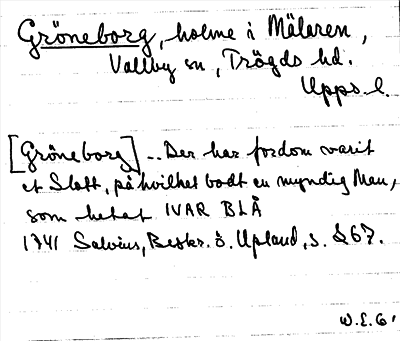 Gröneborg, holme i Mälaren,
Vallby sn, Trögds hd.
Upps. l.
[Gröneborg] .. Der har fordom varit
et Slott, på hvilket bodt en myndig Man,
som hetat IVAR BLÅ
1741 Salvius, Beskr. ö. Upland, s. 267.
W.E.G.